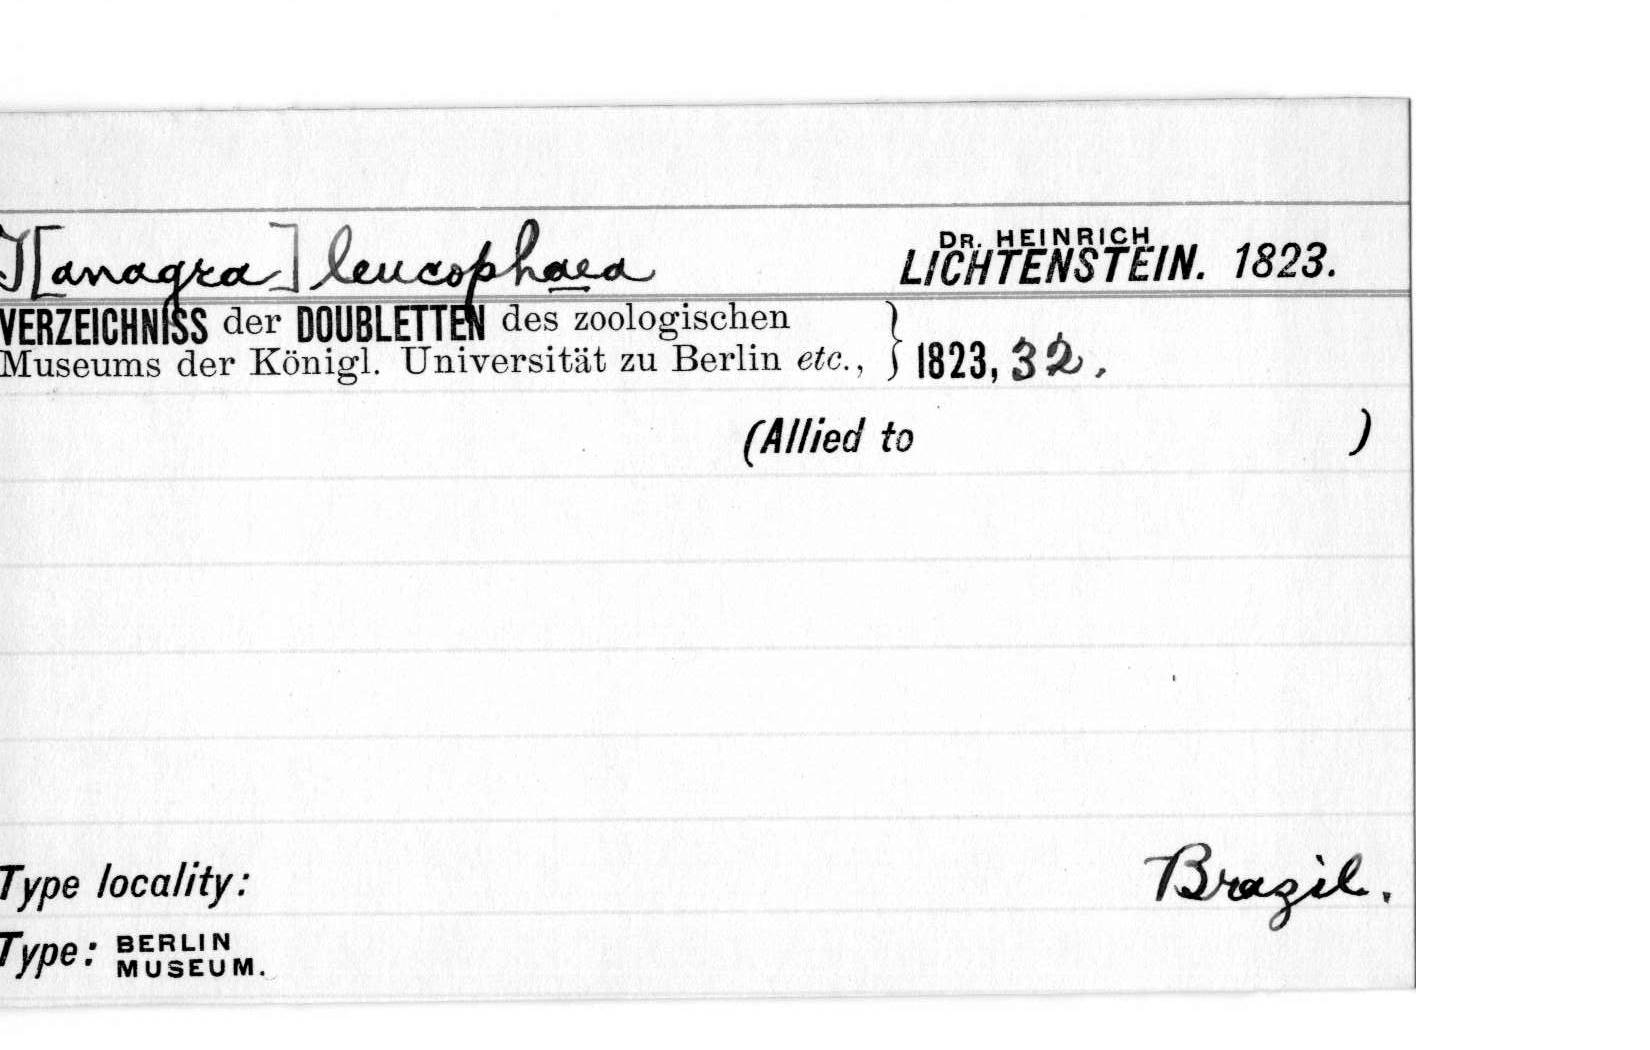 T[anagra] leucophaea
DR. HEINRICH
LICHTENSTEIN. 1823.
VERZEICHNISS der DOUBLETTEN des zoologischen
Museums der Königl. Universität zu Berlin etc., } 1823, 32.
(Allied to )
Type locality: Brazil.
Type: BERLIN
MUSEUM.